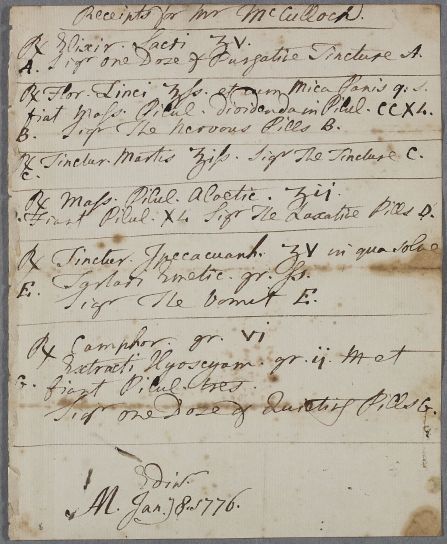 Receipts for Mr McCulloch.
Rx Elixir. Sacri ℥V.
A. Sigr one Dose of Purgative Tincture A.
Rx Flor. Zinci ʒss. et cum Mica Panis q. s.
fiat Mass. Pilul. Dividenda in Pilul. CCXL.
B. Sigr The Nervous Pills B.
Rx Tinctur. Martis ℥iss. Sigr The Tincture C.
C.
Rx Mass. Pilul. Aloetic. ʒij.
fiant Pilul. XL Sigr The Laxative Pills D.
Rx Tinctur. Ipecacuanh. ℥V in qua solve
E. Tartari Emetic. gr. ss.
Sigr The Vomit E.
Rx Camphor. gr. VI
Extracti Hyoscyam. gr. ij M et
G. fiant Pilul. tres.
Sigr one Dose of Quieting Pills G.
Edinr.
M. Jan. 8. 1776.